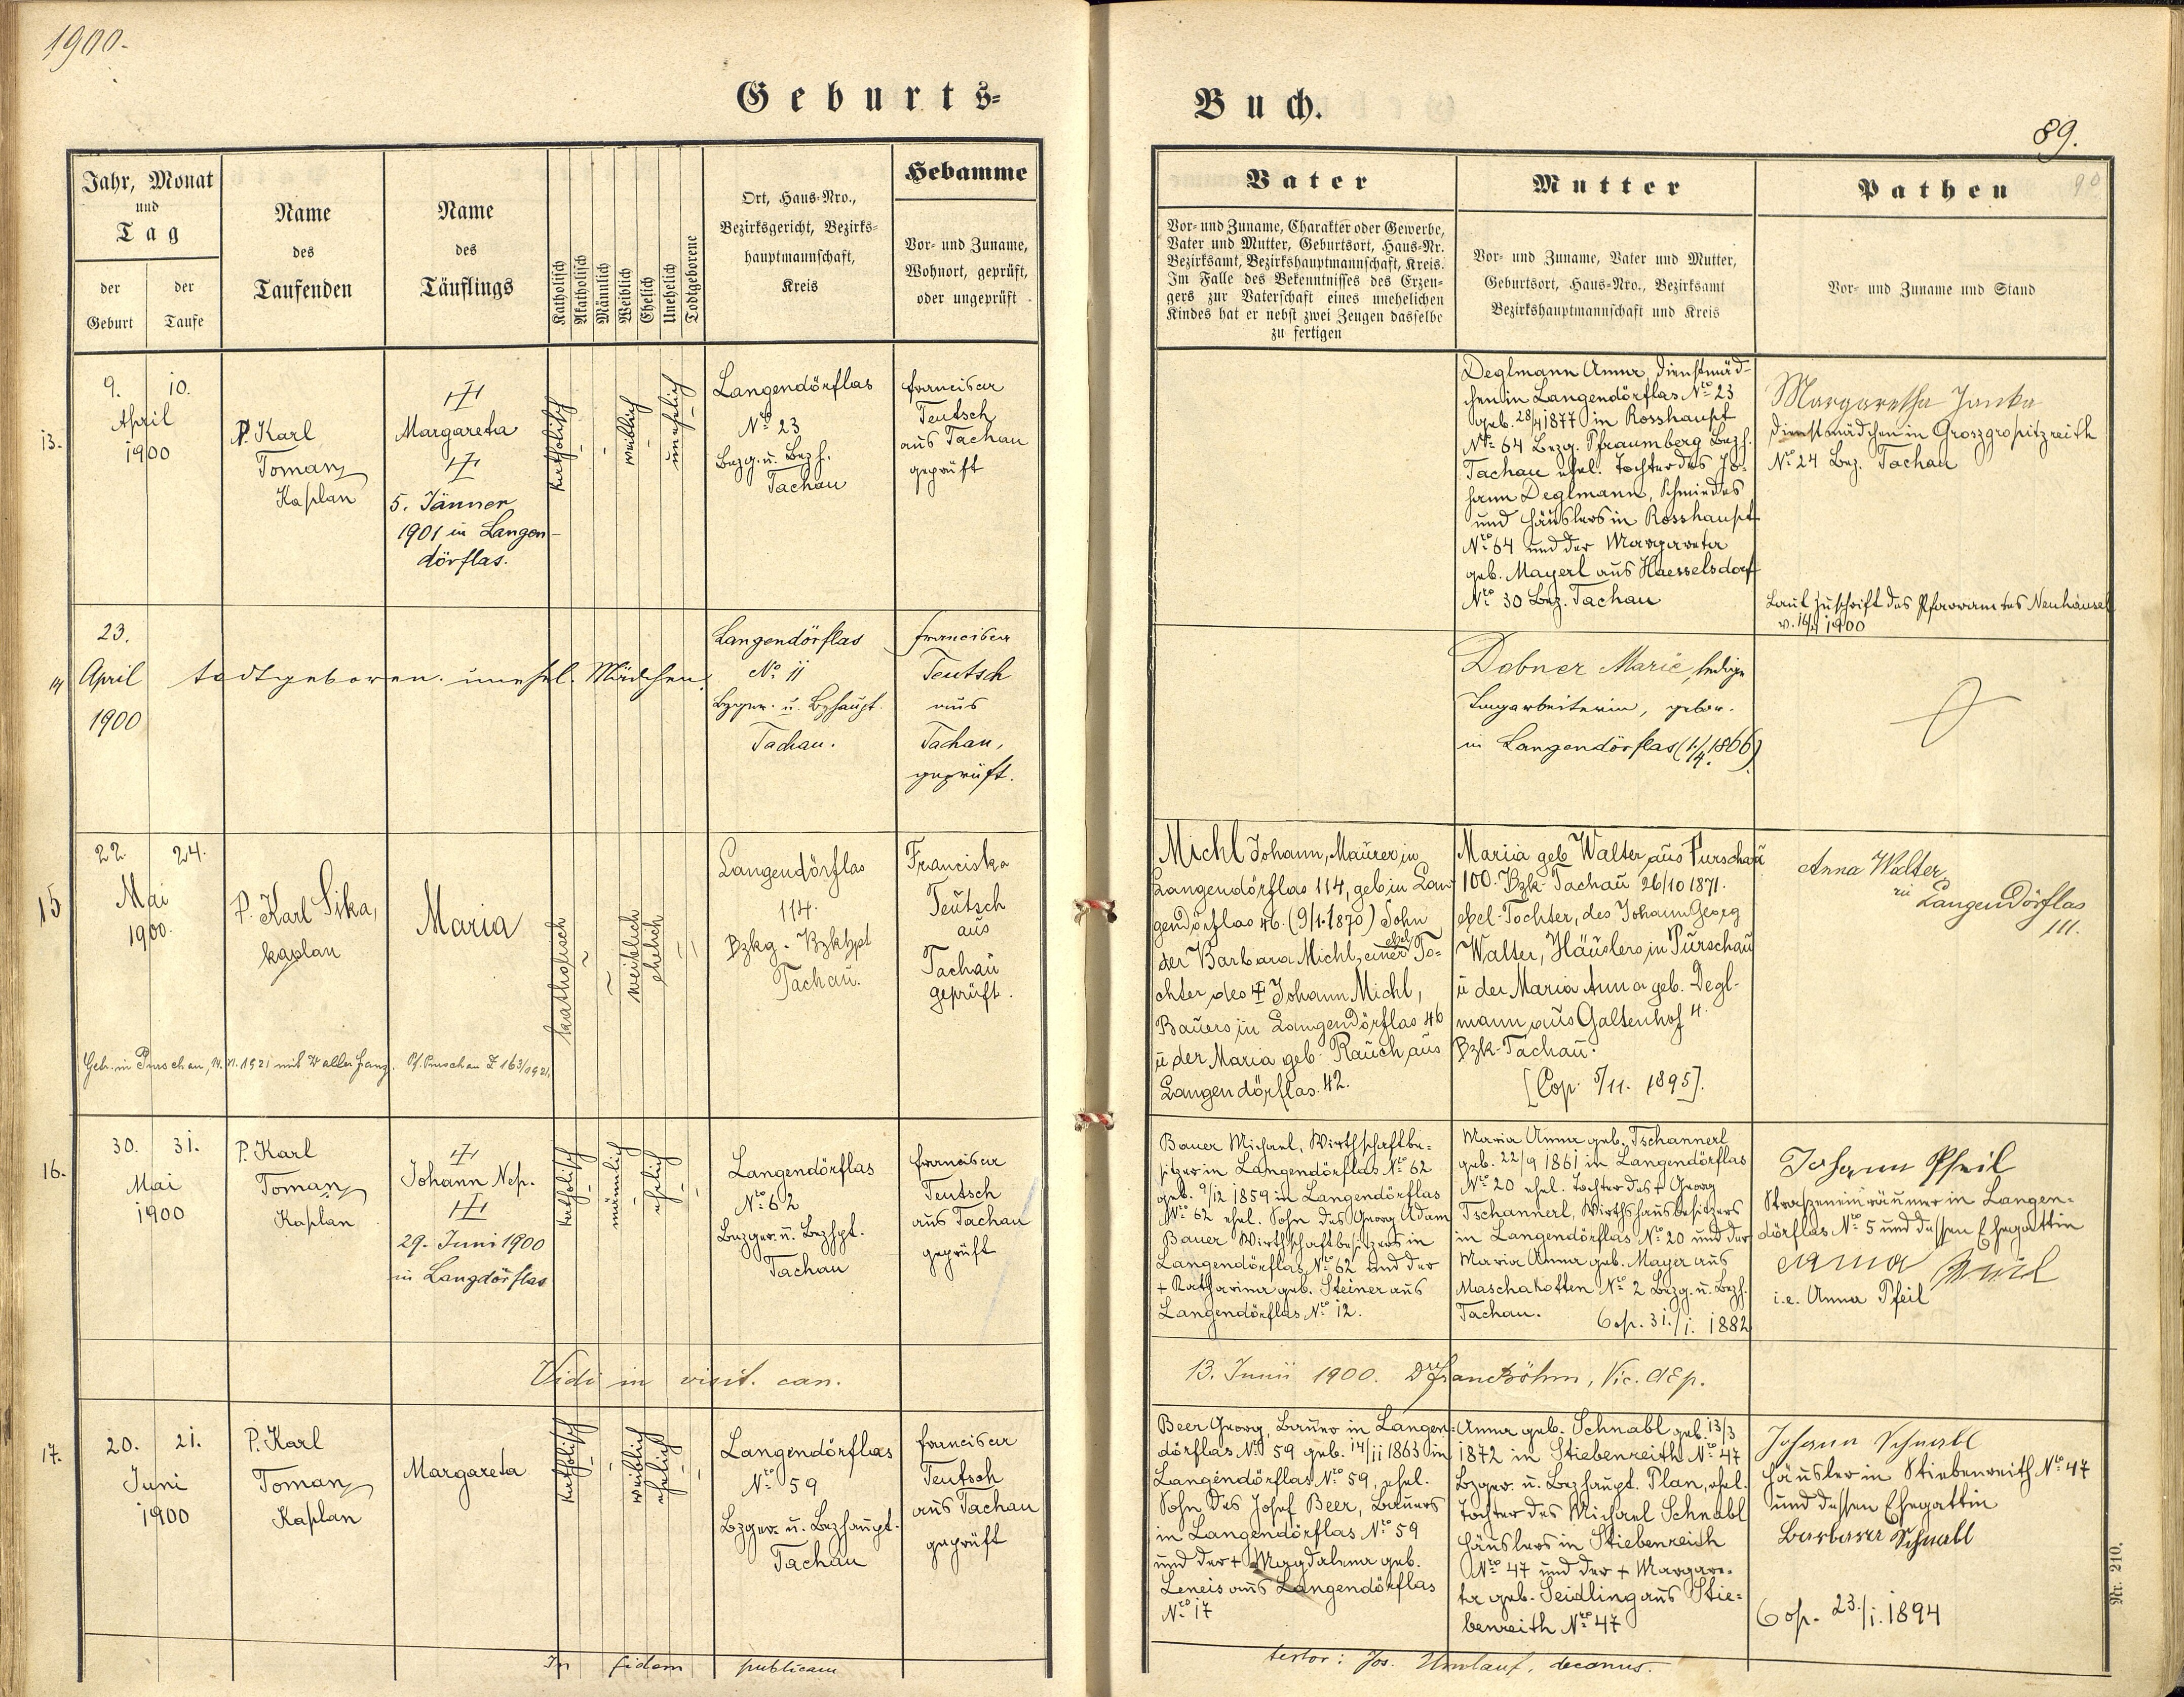 1900.
Geburts-
Jahr, Monat
und
Tag
der Geburt
der Taufe
Name
des
Taufenden
Name
des
Täuflings
Katholisch
Akatholisch
Männlich
Weiblich
Ehelich
Unehelich
Todtgeborene
Ort, Haus-Nro.,
Bezirksgericht, Bezirks-
hauptmannschaft,
Kreis
Hebamme
Vor- und Zuname,
Wohnort, geprüft,
oder ungeprüft
13.
9. 10.
April
1900
P. Karl
Toman
Kaplan
Margareta
5. Jänner
1901 in Langen-
dörflas.
katholisch
weiblich
unehelich
Langendörflas
Nro 23
Bezg. u. Bezh.
Tachau
Francisca
Teutsch
aus Tachau
geprüft
14
23.
April
1900
todtgeboren. unehel. Mädchen.
Langendörflas
No 11
Bzger. u. Bzhaupt.
Tachau.
Francisca
Teutsch
aus
Tachau,
geprüft.
15
22. 24.
Mai
1900.
P. Karl Sika,
kaplan
Maria
katholisch
weiblich
ehelich
Langendörflas
114.
Bzkg - Bzkhpt
Tachau.
Franciska
Teutsch
aus
Tachau
geprüft.
Getr. in Purschau, 14. VI. 1921 mit Walter Franz. Pf. Purschau Z 163/1921.
16.
30. 31.
Mai
1900
P. Karl
Toman
Kaplan
Johann Nep.
29. Juni 1900
in Langdörflas
katholisch
männlich
ehelich
Langendörflas
Nro 62
Bezger. u. Bezhpt.
Tachau
Francisca
Teutsch
aus Tachau
geprüft
Vidi in visit. can.
17.
20. 21.
Juni
1900
P. Karl
Toman
Kaplan
Margareta
katholisch
weiblich
ehelich
Langendörflas
Nro 59
Bzger. u. Bezhaupt.
Tachau
Francisca
Teutsch
aus Tachau
geprüft
In fidem publicam
Buch.
89.
90
Vater
Vor- und Zuname, Charakter oder Gewerbe,
Vater und Mutter, Geburtsort, Haus-Nr.
Bezirksamt, Bezirkshauptmannschaft, Kreis.
Im Falle des Bekenntnisses des Erzeu-
gers zur Vaterschaft eines unehelichen
Kindes hat er nebst zwei Zeugen dasselbe
zu fertigen
Mutter
Vor- und Zuname, Vater und Mutter,
Geburtsort, Haus-Nro., Bezirksamt
Bezirkshauptmannschaft und Kreis
Pathen
Vor- und Zuname und Stand
Deglmann Anna, Dienstmäd-
chen in Langendörflas Nro 23
geb. 28/4 1877 in Rosshaupt
Nro 64 Bezg. Pfraumberg Bezh.
Tachau ehel. Tochter des Jo-
hann Deglmann, Schmiedes
und Häuslers in Rosshaupt
Nro 64 und der Margareta
geb. Mayerl aus Haesselsdorf
Nro 30 Bez. Tachau
Margaretha Janka
Dienstmädchen in Groszgropitzreith
Nro 24 Bez. Tachau
Laut Zuschrift des Pfarramtes Neuhäusel
1900
Dobner Marie, ledige
Tagarbeiterin, gebor.
in Langendörflas (1./4. 1866).
Michl Johann, Maurer in
Langendörflas 114, geb in Lan-
gendörflas 46. (9/1.1870) Sohn
der Barbara Michl, einer ehel To-
chter des Johann Michl,
Bauers in Langendörflas 46
u der Maria geb. Rauch aus
Langendörflas. 42.
Mariia geb Walter aus Purschau
100. Bzk. Tachau 26/10 1871.
ehel. Tochter, des Johann Georg
Walter, Häuslers in Purschau
u der Maria Anna geb. Degl-
mann aus Galtenhof 4.
Bzk. Tachau.
[Cop. 5/11. 1895].
Anna Walter,
in Langendörflas
111.
Bauer Michael, Wirthschaftbe-
sitzer in Langendörflas Nro 62
geb. 9/12 1859 in Langendörflas
Nro 62 ehel. Sohn des Georg Adam
Bauer Wirthschaftbesitzers in
Langendörflas Nro 62 und der
+ Katharina geb. Steiner aus
Langendörflas Nro 12.
Maria Anna geb. Tschannerl
geb. 22/9 1861 in Langendörflas
Nro 20 ehel. Tochter des + Georg
Tschannerl, Wirthshausbesitzers
in Langendörflas Nro 20 und der
Maria Anna geb. Mayer aus
Maschakotten Nro 2 Bezg. u. Bezh.
Tachau. Cop. 31./1. 1882
Johann Pfeil
Straszeneinräumer in Langen-
dörflas Nro 5 und dessen Ehegattin
Anna Pfeil
i.e. Anna Pfeil
13. Junii 1900. Dr Franz Böhm, Vic. aEp.
Beer Georg, Bauer in Langen-
dörflas Nro 59 geb. 14/11 1863 in
Langendörflas Nro 59, ehel.
Sohn des Josef Beer, Bauers
in Langendörflas Nro 59
und der + Magdalena geb.
Leneis aus Langendörflas
Nro 17
Anna geb. Schnabl geb. 13/3
1872 in Stiebenreith Nro 47
Bzger. u. Bezhaupt. Plan, ehel.
Tochter des Michael Schnabl
Häuslers in Stiebenreith
Nro 47 und der + Margare-
ta geb. Seidling aus Stie-
benreith Nro 47
Johann Schnabl
Häusler in Stiebenreith Nro 47
und dessen Ehegattin
Barbara Schnabl
Cop. 23./1. 1894
testor: Jos. Umlauf, decanus.
Nr. 210.